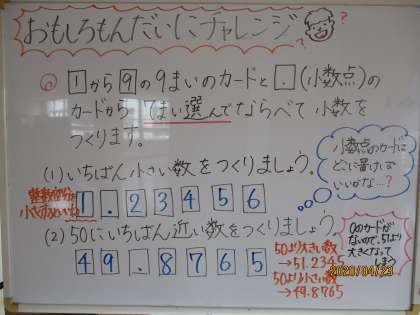 おもしろもんだいにチャレンジ
?
?
◎ 1から9の9まいのカードと.(小数点)の
カードから 7まい選んでならべて 小数を
つくります。
(1) いちばん小さい数をつくりましょう。
小数点のカードは
どこに置けば
いいかな…?
整数部分を
小さくするといい
1.23456
(2) 50にいちばん近い数をつくりましょう。
49.8765
50より大きい数
→51.2345
50より小さい数
→49.8765
0のカードが
ないので、51より
大きくなって
しまう
2020/04/23